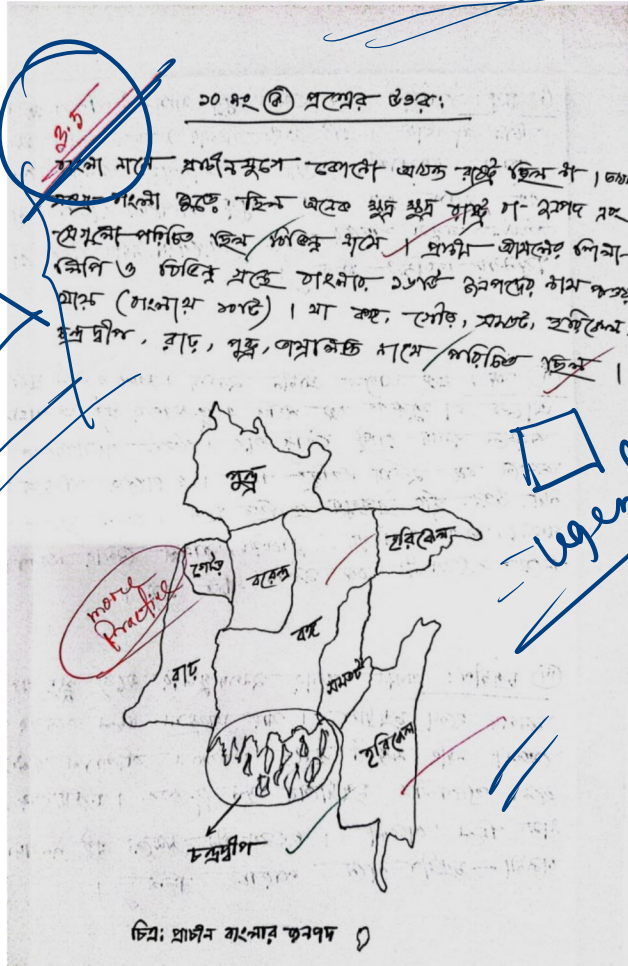 ১০ নং ক প্রশ্নের উত্তর:
3.5
বাংলা নামে প্রাচীনযুগে কোনো অখন্ড রাষ্ট্র ছিল না।
বাংলা জুড়ে ছিল অনেক ক্ষুদ্র ক্ষুদ্র রাষ্ট্র বা জনপদ এবং
সেগুলো পরিচিত ছিল বিভিন্ন নামে। প্রাচীন আমলের শিলা-
লিপি ও বিভিন্ন গ্রন্থে বাংলার ১৬টি জনপদের নাম পাওয়া
যায় (বাংলায় ১০টি)। যা বঙ্গ, গৌড়, সমতট, হরিকেল,
চন্দ্রদ্বীপ, রাঢ়, পুন্ড্র, তাম্রলিপ্তি নামে পরিচিত ছিল।
পুন্ড্র
গৌড়
বরেন্দ্র
হরিকেল
more
Practice
বঙ্গ
রাঢ়
সমতট
হরিকেল
চন্দ্রদ্বীপ
চিত্র: প্রাচীন বাংলার জনপদ